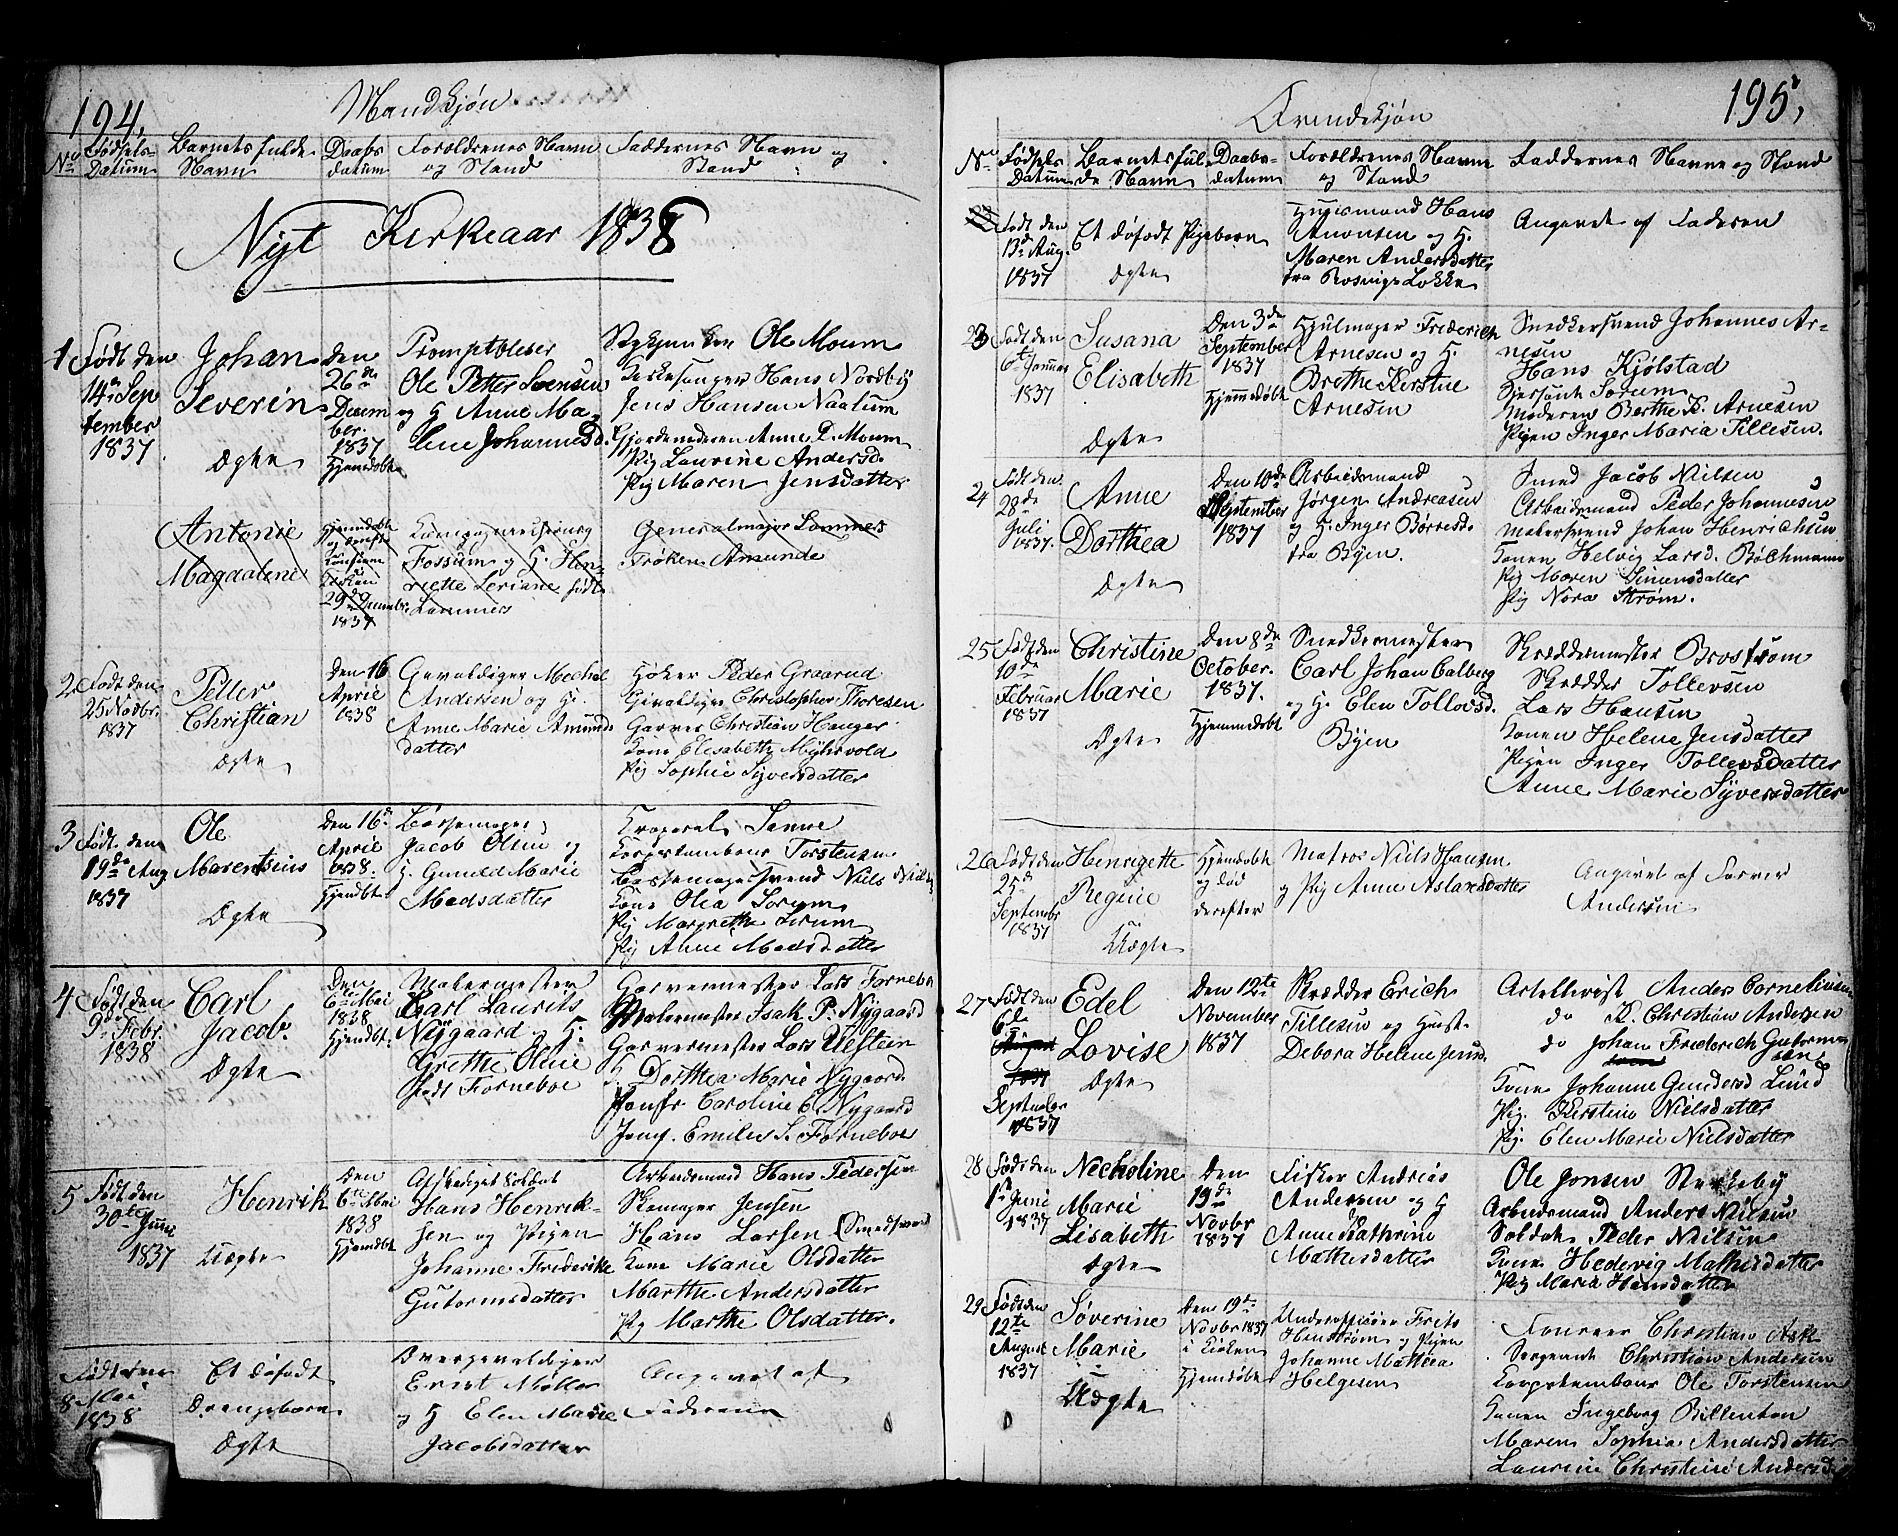 194,
Mandkjøn
No
Fødsels-
Datum
Barnets fulde
Navn
Daabs
datum
Forældrenes Navn
og Stand
Faddernes Navn og
Stand
Nyt Kirkeaar 1838
1
Født den
14de Sep
tember
1837
Johan
Severin
Ægte
den
26de
Decem
ber.
1837
Hjemdøbt
Ole Petter Svensen
og H Anne Ma-
lene Johannesd.
Ole Moum
Kirkesanger Hans Nordby
Jens Hansen Naatum
Gjordemoderen Anne P. Moum
Pig Laurine Andersd.
Pig Maren Jensdatter
Antonie
Magdalene
29de Decembr
1837
Fossum og H. Hen-
riette Leriane født
Lammers
Generalmajor Lammers
Frøken Amunde
2
Født den
25 Novbr.
1837
Petter
Christian
Ægte
Den 16
April
1838
Gevaldiger Mechel
Andersen og H.
Anne Marie Amunds
datter
Høker Peder Graarud
Gevaldiger Christopher Thoresen
Garver Christian Hauger
Kone Elisabeth Myhrvold
Pig Sophie Syversdatter
3
Født den
19de Aug
1837
Ole
Marentius
Ægte
Den 16de
April
1838.
Hjemdøbt
Børsemager
Jacob Olsen og
H. Gunild Marie
Madsdatter
Korporal Sanne
Korpstambour Torstensen
Børsemagersvend Niels
Kone Olea Sorum
Pig Margrethe Sorum
Pig Anne Madsdatter
4
Født den
9de Febr.
1838
Carl
Jacob.
Ægte
Den
6te Mai
1838
Hjemdøbt.
Malermester
Carl Laurits
Nygaard og H.
Grethe Oline
født Forneboe
Garvermester Lars Forneboe
Malermester Isak P. Nygaard
Garvermester Lars Ulstein
H. Dorthea Marie Nygaard
Jomfr Caroline C Nygaard
Jomf. Emilie S. Forneboe
5
Født den
30te Juni
1837
Henrik
Uægte
Den
6te Mai
1838
Hjemdøbt
Afskediget Soldat
Hans Henrik-
sen og Pigen
Johanne Frederikke
Gutormsdatter
Arbeidsmand Hans Pedersen
Skomager Jensen
Hans Larsen (Smedsvend)
Kone Marie Olsdatter
Marthe Andersdatter
Pig Marthe Olsdatter.
Født den
8 Mai
1838
Et dødfødt
Drengebarn
Ægte
Overgevaldiger
Ernst Møller
og H Elen Marie
Jacobsdatter
Angivet af
Faderen
195,
Qvindekjøn
No
Fødsels
Datum
Barnets ful-
de Navn
Daabs-
datum
Forældrenes Navn
og Stand
Faddernes Navne og Stand
Født den
13de Aug.
1837
Et dødfødt Pigebarn
Ægte
Huusmand Hans
og H.
Maren Andersdatter
fra Rosnigs Løkke
Angivet af Faderen
23
Født den
6te Januar
1837
Susana
Elisabeth
Ægte
Den 3de
September
1837
Hjemmedøbt
Hjulmager Frederich
Arnesen og H.
Berthe Kirstine
Arnesen
Snedkersvend Johannes Ar-
nesen
Hans Kjølstad
Sersjant Sorum
Moderen Berthe K. Arnesen
Pigen Inger Maria Tillesen.
24
Født den
28de
Juli
1837.
Anne
Dorthea
Ægte
Den 10de
September
1837
Arbeidsmand
Jørgen Andreasen
og H. Inger Børresd.
fra Byen.
Smed Jacob Nielsen
Arbeidsmand Peder Johannesen
Malersvend Johan Henrichsen
Konen Helvig Larsd. Bøchmann
Pig Maren Simensdatter
Pig Nora Strøm.
25
Født den
10de
Februar
1837
Christine
Marie
Ægte
Den 8de
October.
1837.
Hjemmedøbt
Snedkermester
Carl Johan Calberg
og H. Elen Tollovsd.
Byen
Skræddermester Brostrøm
Skrædder Tollevsen
Lars Hansen
Konen Helene Jensdatter
Pigen Inger Tollevsdatter
Anne Marie Syversdatter
26
Født den
25de
Septembr
1837
Henrigette
Regine
Uægte
Hjemdøbt
og død
derefter
Matros Niels Hansen
og Pig Anne Aslansdatter
Angivet af Farver
Andersen
27
Født den
6de
September
1837
Edel
Lovise
Ægte
Den 12te
November
1837
Skrædder Erich
Tillesen og Hust.
Debora Helene Jensd.
Anders Cornelius
do K. Christian Andersen
do Johan Frederich Gutorm-
sen
Kone Johanne Gundersd Lund
Pig. Kirstine Nielsdatter
Pig. Elen Marie Nielsdatter
28
Født den
1ste Juni
1837
Necholine
Marie
Lisabeth
Ægte
Den
19de
Novbr
1837
Fisker Andreas
Andersen og H
Anne Kathrine
Mathisdatter
Ole Jonsen Sterkeby
Arbeidsmand Anders Nielsen
Soldat Peder Nielsen
Kone Hedevig Mathisdatter
Pig Maria Hansdatter
29
Født den
12te
August
1837
Søverine
Marie
Uægte
Den 19de
Novbr 1837
i Kirken
Hjemdøbt
Underofficier Frits
Henstrøm og Pigen
Johanne Mathea
Helgesen
Fourer Christian Ask
Sergeant Christian Andersen
Korpstambour Ole Torstensen
Konen Ingeborg Billenton
Maren Sophie Andersdatter
Laurine Christine Andersd